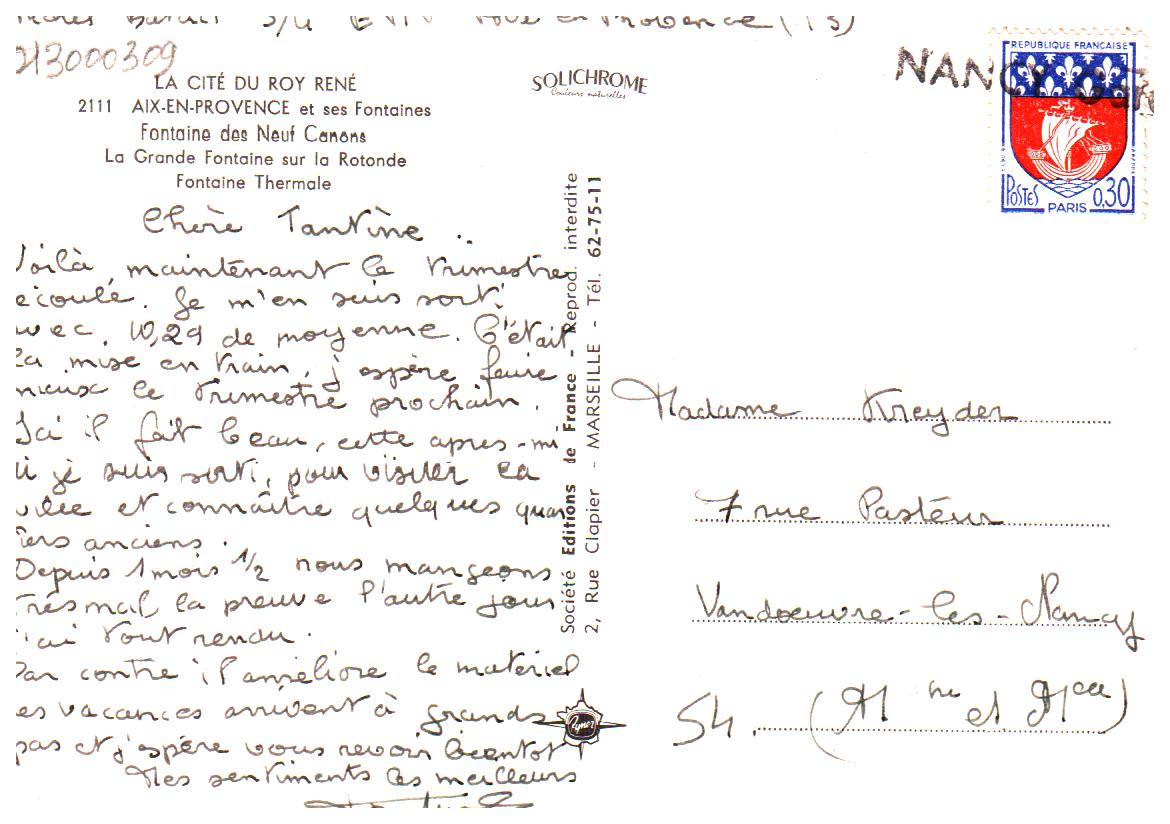 en Provence (13)
213000309
LA CITÉ DU ROY RENÉ
2111 AIX-EN-PROVENCE et ses Fontaines
Fontaine des Neuf Canons
La Grande Fontaine sur la Rotonde
Fontaine Thermale
SOLICHROME
Couleurs naturelles
NANCY Gare
REPUBLIQUE FRANÇAISE
POSTES 0,30
PARIS
Chère Tantine ..
Voilà, maintenant le trimestre
écoulé. Je m'en suis sorti
avec. 10,29 de moyenne. C'était
la mise en train, j'espère faire
mieux le trimestre prochain.
Ici il fait beau, cette apres-mi
di je suis sorti, pour visiter la
ville et connaître quelques quar
tiers anciens.
Depuis 1 mois 1/2 nous mangeons
très mal la preuve l'autre jour
j'ai tout rendu.
Par contre il améliore le matériel
les vacances arrivent à grands
pas et j'espère vous revoir bientot
Mes sentiments les meilleurs
Société Editions de France - Reprod. interdite
2, Rue Clapier - MARSEILLE - Tél. 62-75-11
Madame Kreyder
7 rue Pasteur
Vandoeuvre-les-Nancy
54. (Mthe et Mlle)